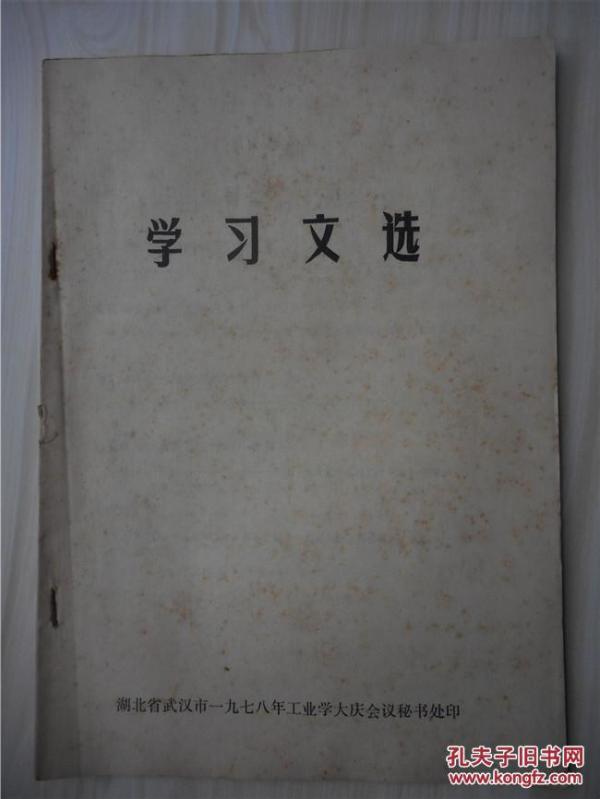 学习文选
湖北省武汉市一九七八年工业学大庆会议秘书处印
孔夫子旧书网
www.kongfz.com